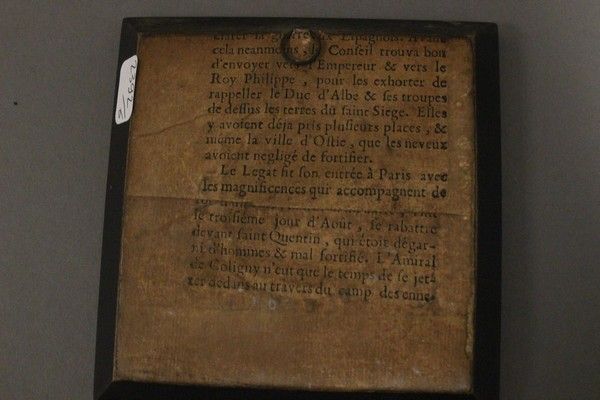 clarer la guerre aux Espagnols. Avant
cela neanmoins, le Conseil trouva bon
d'envoyer vers l'Empereur & vers le
Roy Philippe, pour les exhorter de
rappeller le Duc d'Albe & ses troupes
de dessus les terres du saint Siege. Elles
y avoient déja pris plusieurs places, &
même la ville d'Ostie, que les neveux
avoient negligé de fortifier.
Le Legat fit son entrée à Paris avec
les magnificences qui accompagnent de
le troisiéme jour d'Août, se rabattre
devant saint Quentin, qui étoit dégar-
ni d'hommes & mal fortifié. L'Amiral
de Coligny n'eut que le temps de se jet-
ter dedans au travers du camp des enne-